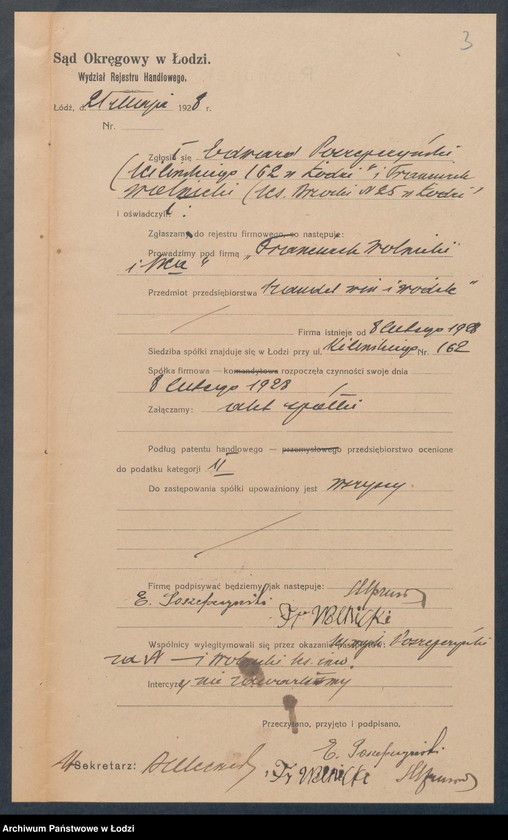 3
Sąd Okręgowy w Łodzi.
Wydział Rejestru Handlowego.
Łódź, d. 21 maja 1928 r.
Nr.
Zgłosił się Edward Poszepczyński
(Kilińskiego 162 w Łodzi" i Franciszek
Wolnicki (ks. Brzóski N 25 w Łodzi)
i oświadczyli:
Zgłaszamy do rejestru firmowego, co następuje:
Prowadzimy pod firmą „Franciszek Wolnicki
i S-ka"
Przedmiot przedsiębiorstwa handel win i wódek"
Firma istnieje od 8 lutego 1928
Siedziba spółki znajduje się w Łodzi przy ul. Kilińskiego Nr. 162
Spółka firmowa — komandytowa rozpoczęła czynności swoje dnia
8 lutego 1928
Załączamy: akt spółki
Podług patentu handlowego — przemysłowego przedsiębiorstwo ocenione
do podatku kategorji II
Do zastępowania spółki upoważniony jest wszyscy.
Firmę podpisywać będziemy jak następuje:
E. Poszepczyński
Fr Wolnicki
Wspólnicy wylegitymowali się przez okazanie Poszepczyński
za N — i Wolnicki
Intercyzy nie zawarliśmy
Przeczytano, przyjęto i podpisano.
E. Poszepczyński
Sekretarz: Fr Wolnicki
Archiwum Państwowe w Łodzi